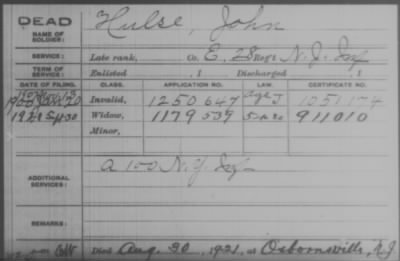 DEAD
NAME OF SOLDIER:
Hulse, John
SERVICE:
Late rank, Co. E, 28 Reg't N. J. Inf
TERM OF SERVICE:
Enlisted , 1 Discharged , 1
DATE OF FILING. CLASS. APPLICATION NO. LAW. CERTIFICATE NO.
1900 Jan 20 Invalid, 1250647 J 1051174
1921 Sep 30 Widow, 1179539 911010
Minor,
ADDITIONAL SERVICES:
N. J. Inf
REMARKS:
Died Aug. 30, 1921, at Osbornsville, N.J.